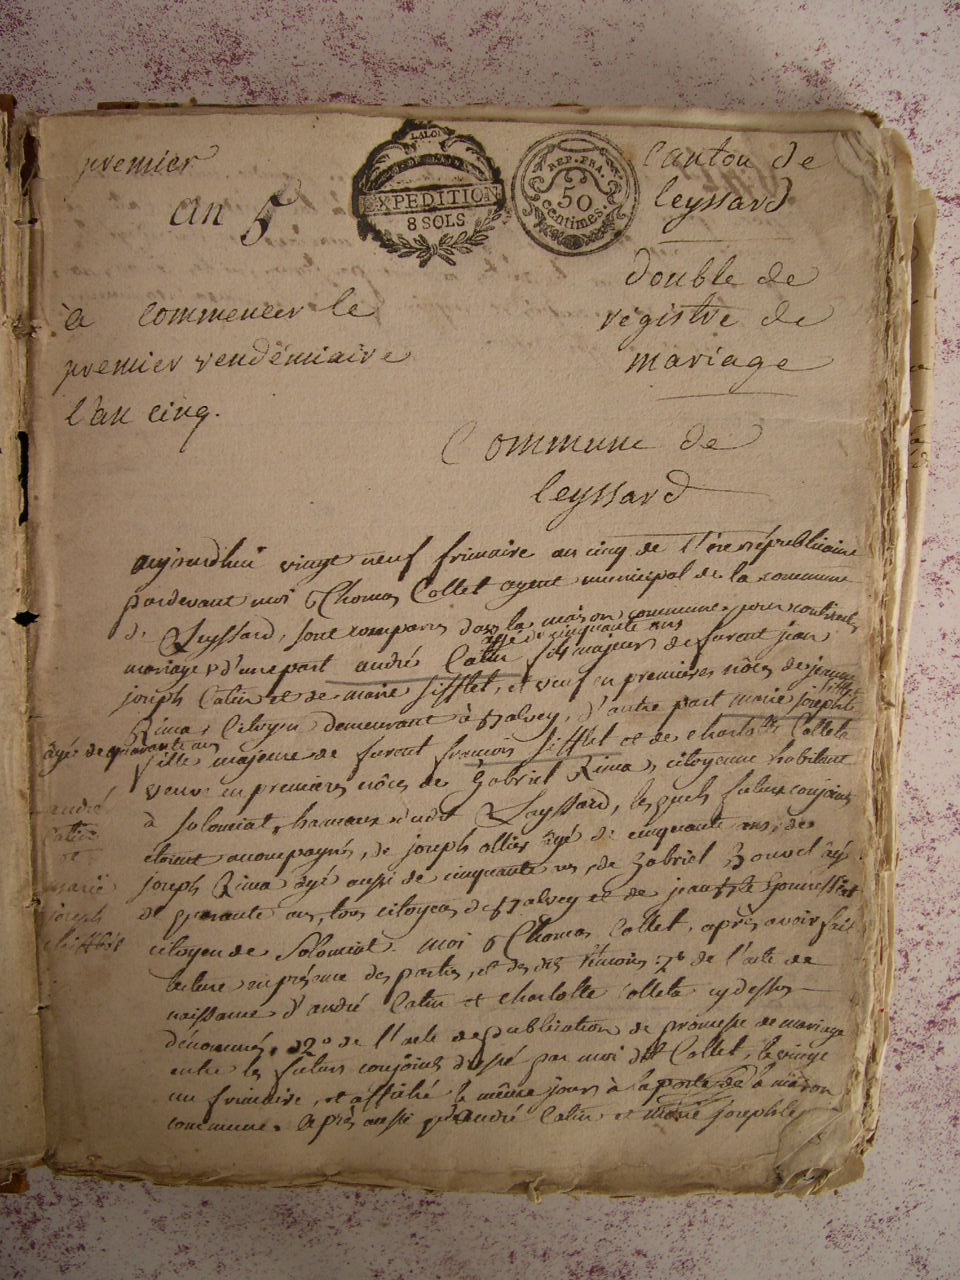 premier
an 5
LA LOI
EXPEDITION
8 SOLS
REP. FRA.
50
centimes.
Canton de
leyssard
Double de
registre de
mariage
a commencer le
premier vendémiaire
l'an cinq.
Commune de
leyssard
aujourdhui vingt neuf frimaire an cinq de l'ère républicaine
pardevant moi Thomas Collet agent municipal de la commune
de Leyssard, sont comparus dans la maison commune, pour contracter
agé de cinquante ans
mariage d'une part andré Catin fils majeur de furent jean
joseph Catin et de marie sifflet, et veuf en premieres nôces de
Rima, Citoyen demeurant à d'autre part marie josephte
agé de quarante ans
fille majeure de furent francois sifflet et de charlotte Colleta
veuve en premieres nôces de Gabriel Rima, citoyenne habitant
à Solomiat, hamaux dudit Leyssard, lesquels futurs conjoints
étoient accompagnés, de joseph ollier âgé de cinquante ans, de
joseph Rima âgé aussi de cinquante ans, de Gabriel
de quarante ans, tous citoyens de et de jean
citoyen de Solomiat. moi Thomas Collet, après avoir fait
lecture en présence des parties, et des dits témoins: de l'acte de
naissance d'andré Catin et charlotte Colleta cy dessus
dénommés, 2° de l'acte de publication de promesse de mariage
entre les futurs conjoints dréssé par moi dit Collet, le vingt
un frimaire, et affiché le même jour à la porte de la maison
commune. après aussi andré Catin et marie josephte
andré
Catin
et
marie
joseph
sifflet